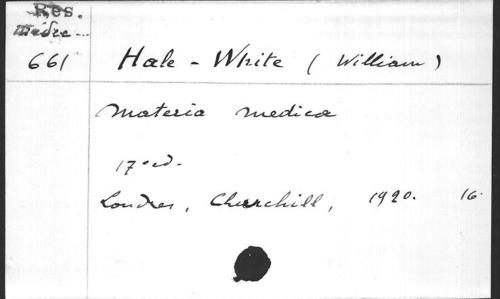 Res.
Médec...
661 Hale-White (William)
Materia medica
17° ed.
Londres, Churchill, 1920. 16